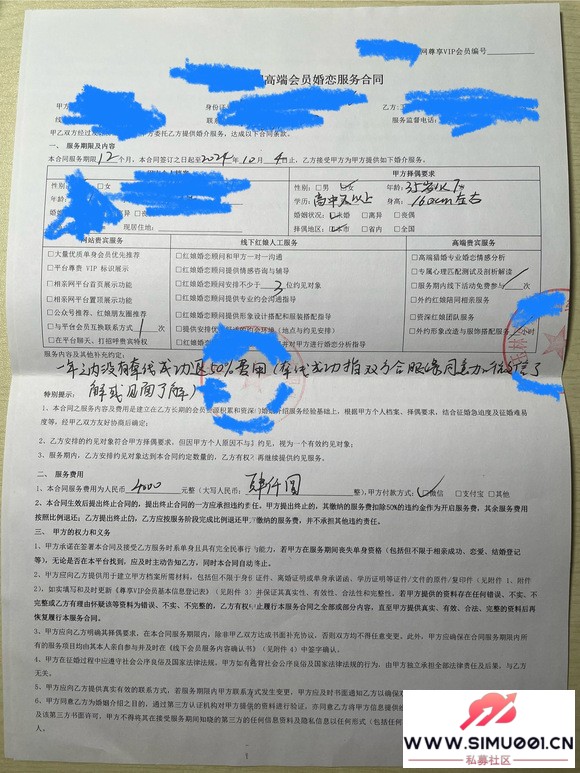 网尊享VIP会员编号
高端会员婚恋服务合同
甲方
身份证
乙方:
联系
服务监督电话:
甲乙双方经过
方委托乙方提供婚介服务，达成以下合同条款。
一、服务期限及内容
本合同服务期限 12 个月，本合同签订之日起至2024年10月4止，乙方接受甲方为甲方提供如下婚介服务。
甲方择偶要求
性别: □女
性别：□男 女 年龄：35岁以下
年龄:
学历：高中及以上 身高：160cm左右
婚姻
婚姻状况： 未 □离异 □丧偶
现居住地:
择偶地区： 本市 □省内 □全国
网站贵宾服务 线下红娘人工服务 高端贵宾服务
□大量优质单身会员优先推荐 □红娘婚恋顾问和甲方一对一沟通 □高端猎婚专业婚恋情感分析
□平台尊贵 VIP 标识展示 □红娘婚恋顾问提供情感咨询与辅导 □专属心理匹配测试及剖析解读
□相亲网平台首页展示功能 □红娘婚恋顾问安排不少于 3 位约见对象 □服务期内线下活动免费参与 次
□相亲网平台置顶展示功能 □红娘婚恋顾问提供专业的约会沟通指导 □外约红娘陪同相亲服务
□公众号推荐、红娘朋友圈推荐 □红娘婚恋顾问提供形象设计搭配和服装搭配指导 □资深红娘团队服务
□与平台会员互换联系方式 1 次 □提供安排优 的约会环境（地点与约见安排） □外约形象改造与服饰搭配服务 小时
□在平台聊天、打招呼贵宾特权 □红娘 并对甲方进行婚恋分析指导
服务内容及其他补充约定:
一年内没有牵线成功退50%费用（牵线成功指双方合眼缘同意加微信了
解或见面了解）
特别提示:
1、本合同之服务内容及费用是建立在乙方长期的会员资源积累和资深 婚介绍服务经验基础上，根据甲方个人档案、择偶要求，结合征婚急迫度及征婚难易
度等，经甲乙双方友好协商后确定；
2、乙方安排的约见对象符合甲方择偶要求，但因甲方个人原因不与其约见，视为一个有效约见对象；
3、服务期内，乙方安排约见对象达到本合同约定数量的，乙方有权不再继续提供约见服务。
二、服务费用
1、本合同服务费用为人民币 4000 元整（大写人民币： 肆仟圆 整），甲方付款方式：□微信 □支付宝 □其他
2、本合同生效后提出终止合同的，提出终止合同的一方应承担违约责任。甲方提出终止的，其缴纳的服务费扣除50%的违约金作为开启服务费，其余服务费用
按照比例退还；乙方提出终止的，乙方应按服务阶段完成比例退还甲方缴纳的服务费，并不承担其他违约责任。
三、甲方的权力和义务
1、甲方承诺在签署本合同及接受乙方服务时系单身且具有完全民事行为能力，若甲方在服务期间丧失单身资格（包括但不限于相亲成功、恋爱、结婚登记
等），无论是否在本平台找到，应及时主动告知乙方，同时本合同自动终止。
2、甲方应向乙方提供用于建立甲方档案所需材料，包括但不限于身份证件、离婚证明或单身承诺函、学历证明等证件/文件的原件/复印件（见附件 1、附件
2），如实填写和及时更新《尊享VIP会员基本信息登记表》（见附件 3）并保证其真实性、有效性、合法性和完整性。若甲方提供的资料存在任何错误、不实、不
完整或乙方有理由怀疑该等资料为错误、不实、不完整的，乙方有权中止履行本服务合同之全部或部分内容，直至甲方提供真实、有效、合法、完整的资料后再
恢复履行本服务合同。
3、甲方应向乙方明确其择偶要求，在本合同服务期限内，除非甲乙双方达成书面补充协议，否则双方均不得任意变更。此外，甲方应确保在合同服务期限内所有
的服务项目均由其本人亲自参与并及时在《线下会员服务内容确认书》（见附件 4）中签字确认。
4、甲方在征婚过程中应遵守社会公序良俗及国家法律法规，甲方如有违背社会公序良俗及国家法律法规的行为，由甲方独立承担全部法律责任及后果，与乙方
无关。
5、甲方应向乙方提供真实有效的联系方式，若服务期限内甲方联系方式发生变更，甲方应及时书面通知乙方以确保
6、甲方同意乙方为婚姻介绍之目的，通过第三方认证机构对甲方提供的资料进行验证，亦同意乙方将甲方信息提供给
及该第三方书面许可，甲方不得将其在接受服务期间知悉的第三方的任何信息及隐私信息以任何形式（包括任何
人。
1
WWW.SIMU001.CN
私募社区